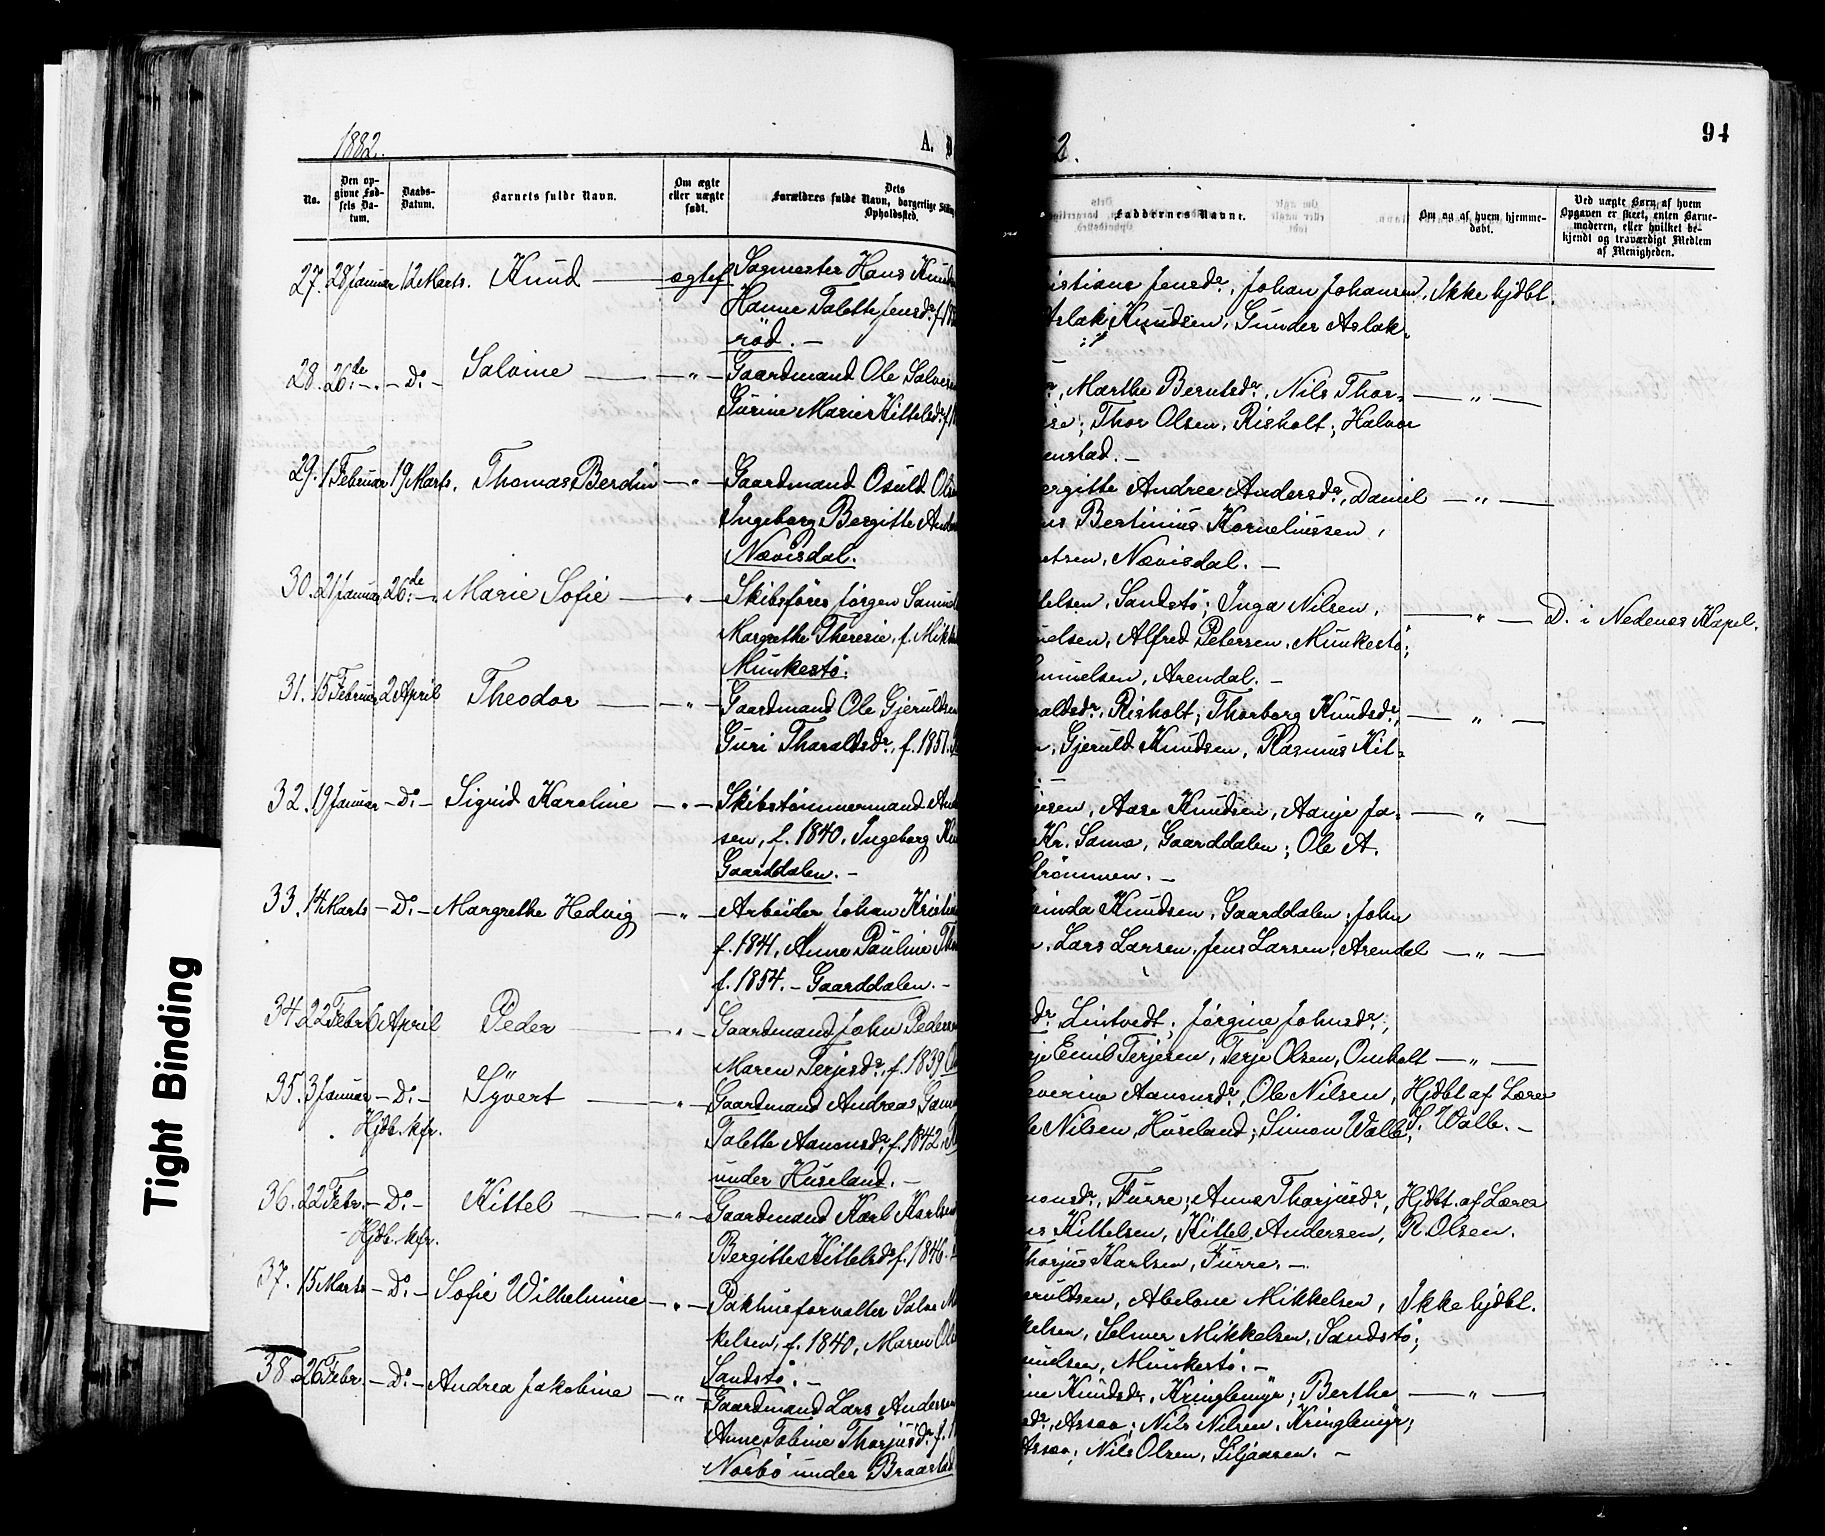 1882.
A.
2.
94
No.
Den op-
givne Fød-
sels Da-
tum.
Daabs-
Datum.
Barnets fulde Navn.
Om ægte
eller uægte
født.
Dets
Forældres fulde Navn, borgerlige Stilling
Opholdssted.
Faddernes Navne.
Om og af hvem hjemme-
døbt.
Ved uægte Børn, af hvem
Opgaven er skeet, enten Barne-
moderen, eller hvilket be-
kjendt og troværdigt Medlem
af Menigheden.
27. 28 Januar 12 Marts. Knud — ægtef. Sagmester Hans Knud
Hanne Talette Jensdr. f. 18
rød. —
istiane Jensdr., Johan Johansen, Ikke hjdbt.
Aslak Knudsen, Gunder Aslak-
28. 26de — . — Do — Salvine — " — Gaardmand Ole Salves
Gurine Marie Kittelsdr. f. 1
, Marthe Berntsdr., Nils Thor- — " —
se; Thor Olsen, Risholt; Halvor
enstad. —
29. 1 Februar 19 Marts. Thomas Berdin — " — Gaardmand Osuld Ols
Ingeborg Bergitte And
Nævisdal.
ergitte Andrea Andersdr., Daniel — " —
us Bertinius Korneliussen,
etsen, Nævisdal. —
30. 21 Januar 26de — . Marie Sofie — " — Skibsfører Jørgen Samu
Margrethe Theresie, f. Mikk
Munkestø.
elsen, Sandstø; Inga Nilsen, — " — D. i Nedenes Kapel.
uelsen, Alfred Petersen, Munkestø;
muelsen, Arendal. —
31. 15 Februar 2 April Theodor — " — Gaardmand Ole Gjeruldsen
Guri Tharaldsdr., f. 1851.
aldsdr., Risholt; Thorborg Knudsdr., — " —
n, Gjeruld Knudsen, Rasmus Kit-
32. 19 Januar — Do — Sigrid Karoline — " — Skibstømmermand And
sen, f. 1840, Ingeborg Kn
Gaarddalen. —
jesen, Aase Knudsen, Aanje Ja- — " —
Kr. Sama, Gaarddalen; Ole A.
Strømmen. —
33. 14 Marts — Do — Margrethe Hedvig — " — Arbeider Johan Kristia
f. 1841, Anne Pauline Th
f. 1854. — Gaarddalen. —
inda Knudsen, Gaarddalen; John
n, Lars Larsen, Jens Larsen, Arendal — " —
34. 22 Febr 6 April Peder — " — Gaardmand John Peders
Maren Terjesdr., f. 1839 O
dr. Lintvedt; Jørgine Johnsdr.,
je Emil Terjesen, Terje Olsen, Omholt — " —
35. 3 Januar — Do — Syvert — " — Gaardmand Andreas Gun
Hjdb. kfr.
Talette Aanonsdr., f. 1842.
under Huseland. —
everine Aanonsdr., Ole Nilsen, Hjdbt af Lærer
e Nilsen, Huseland; Simon Walle, S. Walle. —
36. 22 Febr. — Do — Kittel — " — Gaardmand Karl Karlsen
Hjdb. kfr.
Bergitte Kittelsdr. f. 1846.
nonsdr., Furre; Anne Thorjusdr., Hjdbt. af Lærer
ns Kittelsen, Kittel Andersen, R. Olsen.
Thorjus Karlsen, Furre. —
37. 15 Marts — Do — Sofie Wilhelmine — " — Pakhusforvalter Salve M
kelsen, f. 1840, Maren Ol
Sandstø. —
ruldsen, Abelone Mikkelsen, Ikke hjdbt.
kelsen, Selmer Mikkelsen, Sandstø;
muelsen, Munkestø. —
38. 26 Febr. — Do — Andrea Jakobine — " — Gaardmand Lars Andersen
Anne Tobine Thorjusdr. f. 1
Norbø under Braastad
ine Knudsdr., Kringlemyr; Berthe — " —
dr., Assæv; Nils Nilsen, Kringlemyr;
Assæv; Nils Olsen, Siljaasen. —
Tight Binding